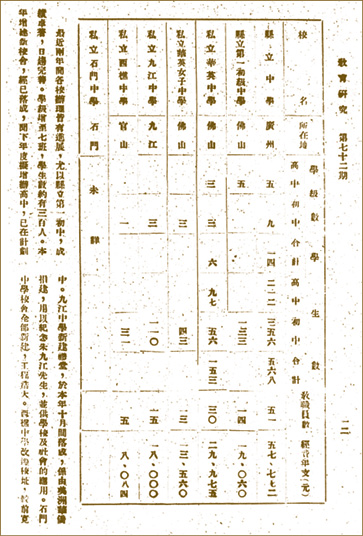 教育研究 第七十二期
一二
校名 所在地 學級數 學生數 教職員數 經費年支(元)
高中 初中 合計 高中 初中 合計
縣立中學 廣州 五 九 一四 二一二 三五六 五六八 五一 五七、七七二
縣立第一初級中學 佛山 五 一三三 一四 一九、〇六〇
私立華英中學 佛山 三 三 六 九七 五六 一五三 三〇 二九、九七五
私立華英女子中學 佛山 三 四三 一三 三、五六〇
私立九江中學 九江 三 一一〇 一五 八、〇〇〇
私立西樵中學 官山 一 三一 一五 八、〇八四
私立石門中學 石門 未詳
最近兩年間各校辦理皆有進展，尤以縣立第一初中，成
績卓著，日趨完善。學級增至七班，學生數約有三百人。本
年增建新校舍，經已落成，聞下年度擬增辦高中，已在計劃
中。九江中學新建禮堂，於本年十月間落成，係由美洲華僑
捐建，用以紀念朱九江先生，並供學校及社會的應用。石門
中學校舍全部新建，工程浩大。西樵中學改遷校址，較前寬